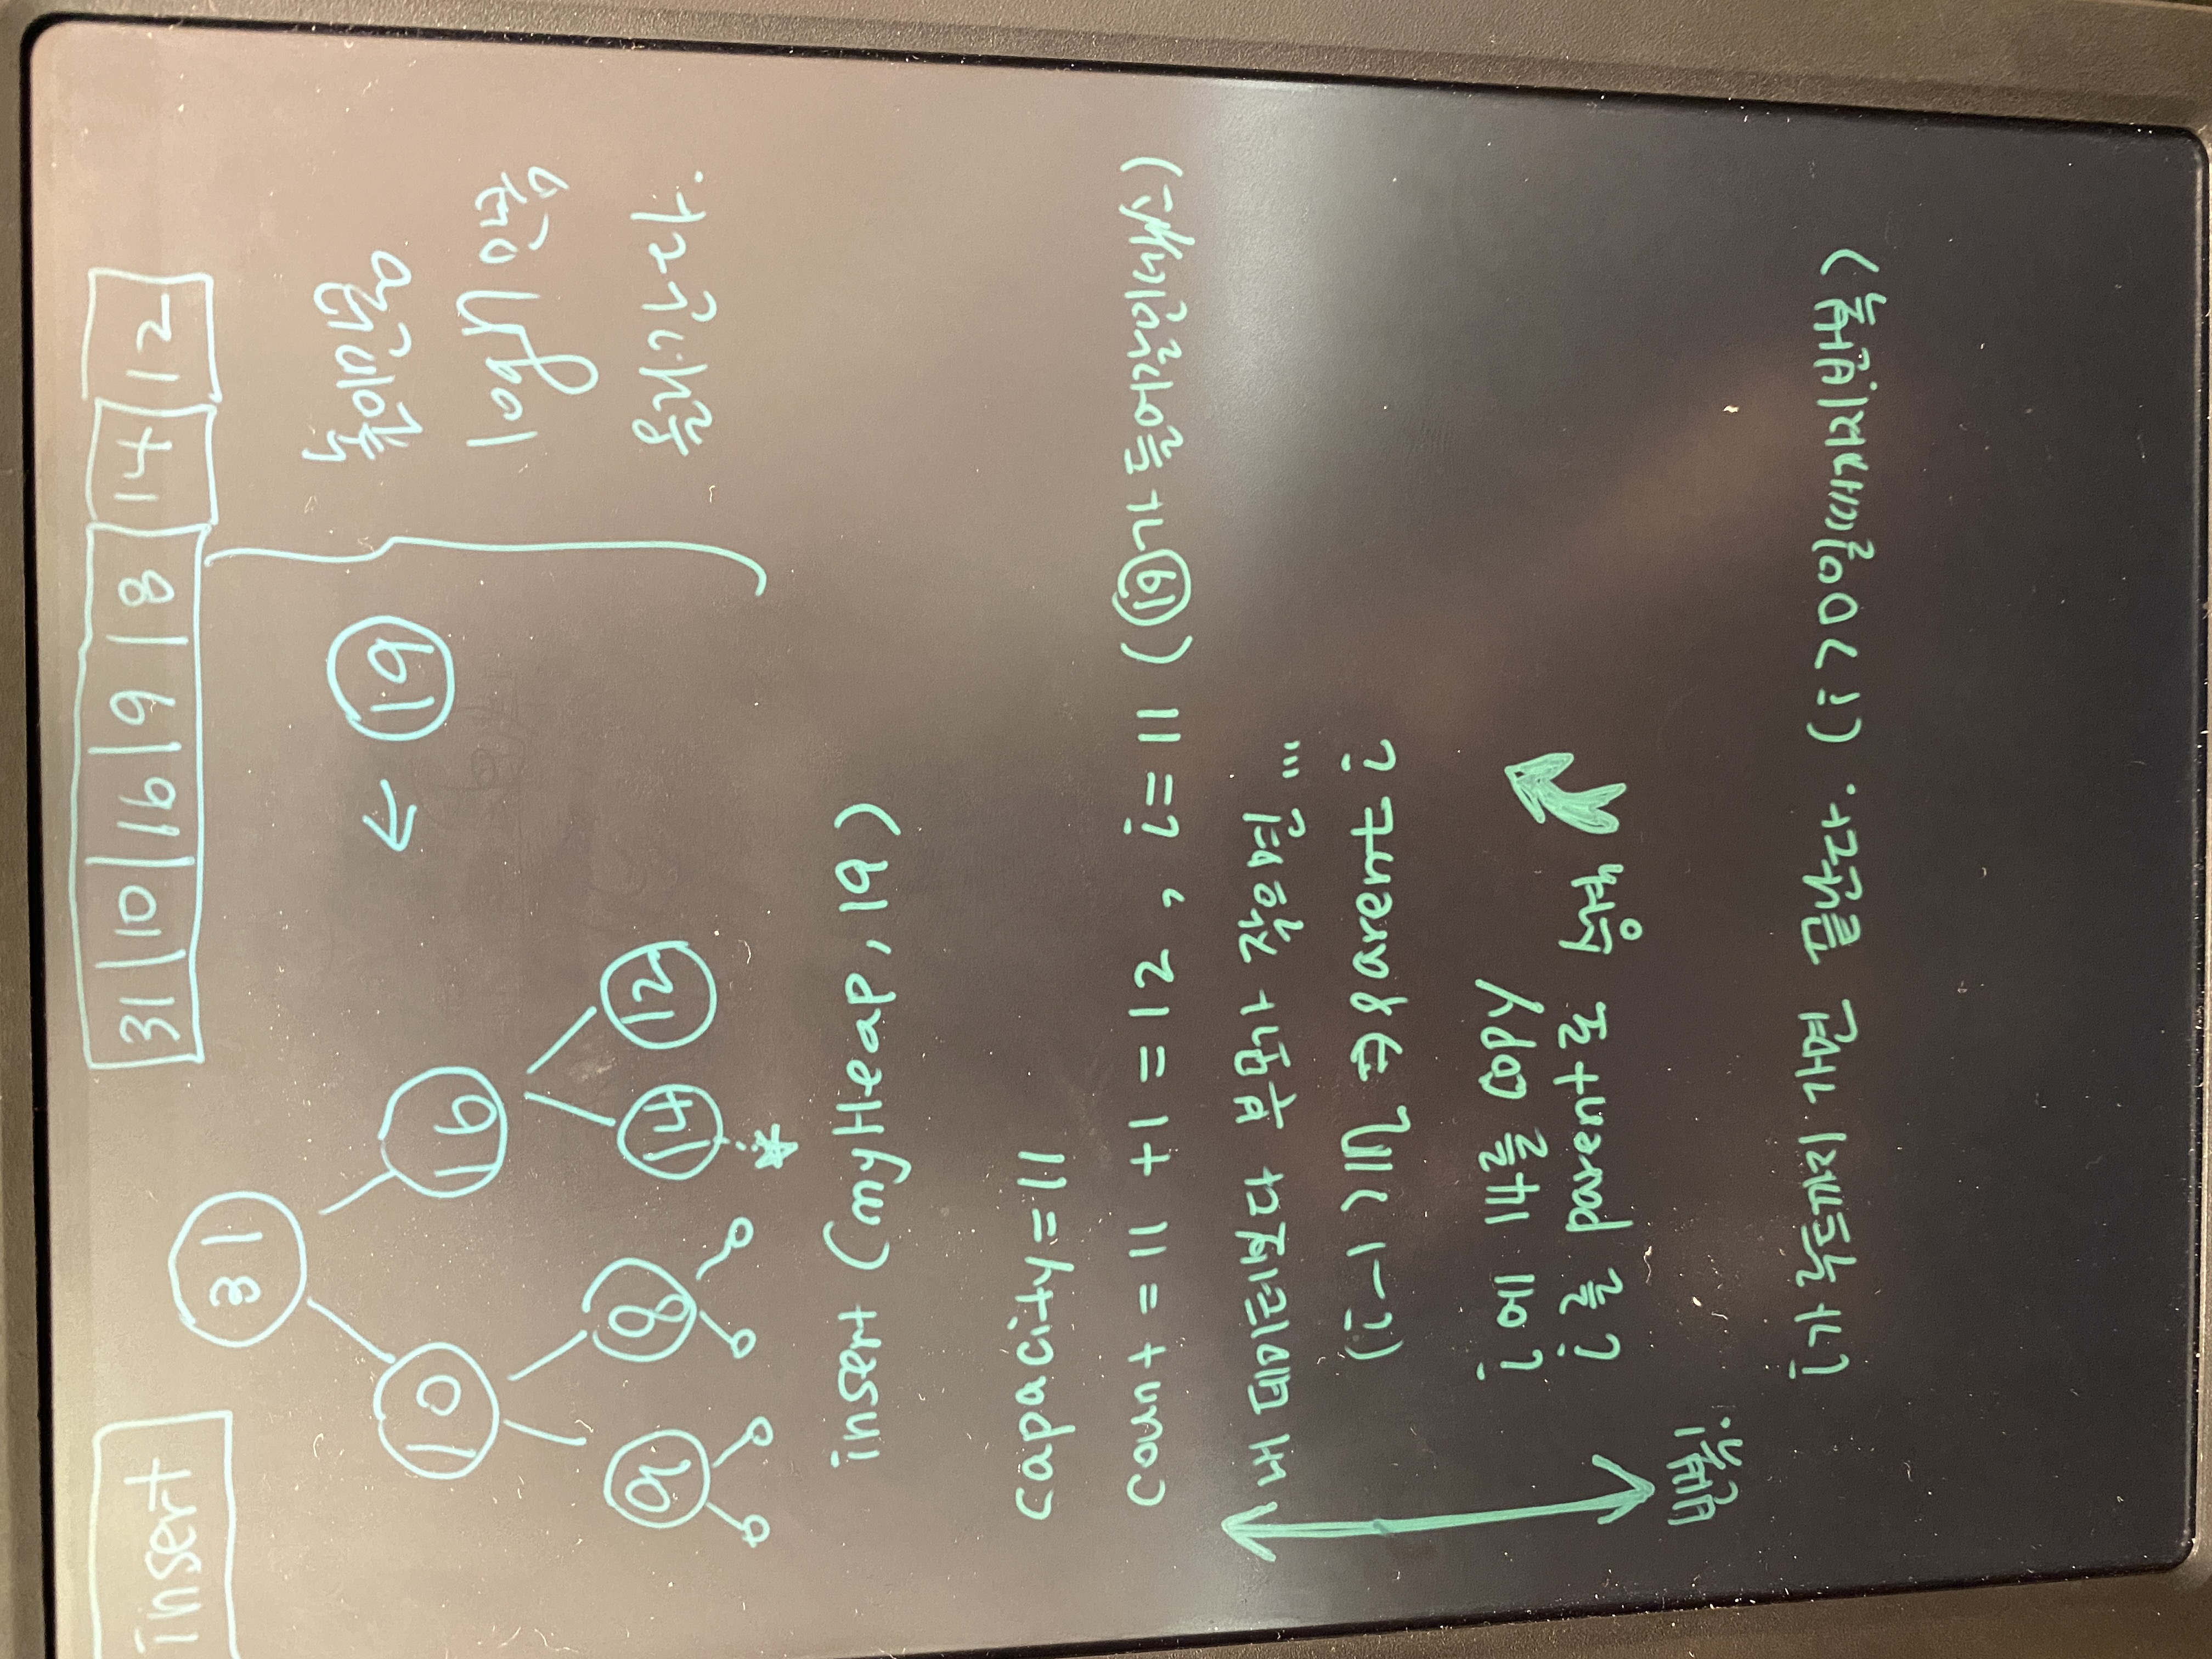 insert
31 | 10 | 16 | 9 | 8 | 14 | 12
31
10 16
← 19
9 8 14 12
높이만큼
logn 만큼
올라간다.
insert (myHeap, 19)
capacity = 11
count = 11 +1 = 12 , i = 11 (19가 들어갈 인덱스)
내 데이터보다 부모가 작으면 ...
(i-1) ⇒ parent i
i 에 14를 copy
i 를 parent로 승격
반복!
i가 루트까지 가면 끝난다. (i > 0 일때까지 반복)